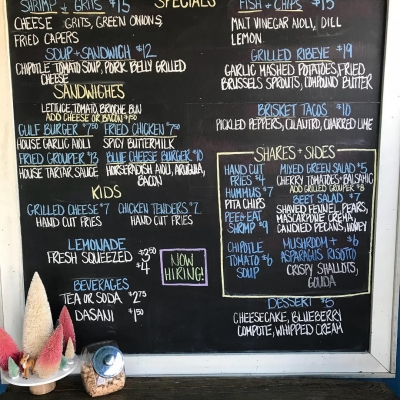 SPECIALS
SHRIMP & GRITS $15
CHEESE GRITS, GREEN ONIONS,
FRIED CAPERS
SOUP + SANDWICH $12
CHIPOTLE TOMATO SOUP, PORK BELLY GRILLED
CHEESE
SANDWICHES
LETTUCE, TOMATO, BRIOCHE BUN
ADD CHEESE OR BACON $1.50
GULF BURGER $7.50 FRIED CHICKEN $7.50
HOUSE GARLIC AIOLI SPICY BUTTERMILK
FRIED GROUPER $13 BLUE CHEESE BURGER $10
HOUSE TARTAR SAUCE HORSERADISH AIOLI, ARUGULA,
BACON
KIDS
GRILLED CHEESE $7 CHICKEN TENDERS $7
HAND CUT FRIES HAND CUT FRIES
LEMONADE
FRESH SQUEEZED $3.50
$4
NOW
HIRING!
BEVERAGES
TEA OR SODA $2.75
DASANI $1.50
FISH + CHIPS $15
MALT VINEGAR AIOLI, DILL
LEMON
GRILLED RIBEYE $19
GARLIC MASHED POTATOES, FRIED
BRUSSELS SPROUTS, COMPOUND BUTTER
BRISKET TACOS $10
PICKLED PEPPERS, CILANTRO, CHARRED LIME
SHARES + SIDES
HAND CUT
FRIES $4
HUMMUS $7
PITA CHIPS
PEEL & EAT
SHRIMP $9
CHIPOTLE
TOMATO $6
SOUP
MIXED GREEN SALAD $5
CHERRY TOMATOES + BALSAMIC
ADD GRILLED GROUPER $8
BEET SALAD $7
SHAVED FENNEL, PEARS,
MASCARPONE CREMA,
CANDIED PECANS, HONEY
MUSHROOM + $6
ASPARAGUS RISOTTO
CRISPY SHALLOTS,
GOUDA
DESSERT $5
CHEESECAKE, BLUEBERRY
COMPOTE, WHIPPED CREAM